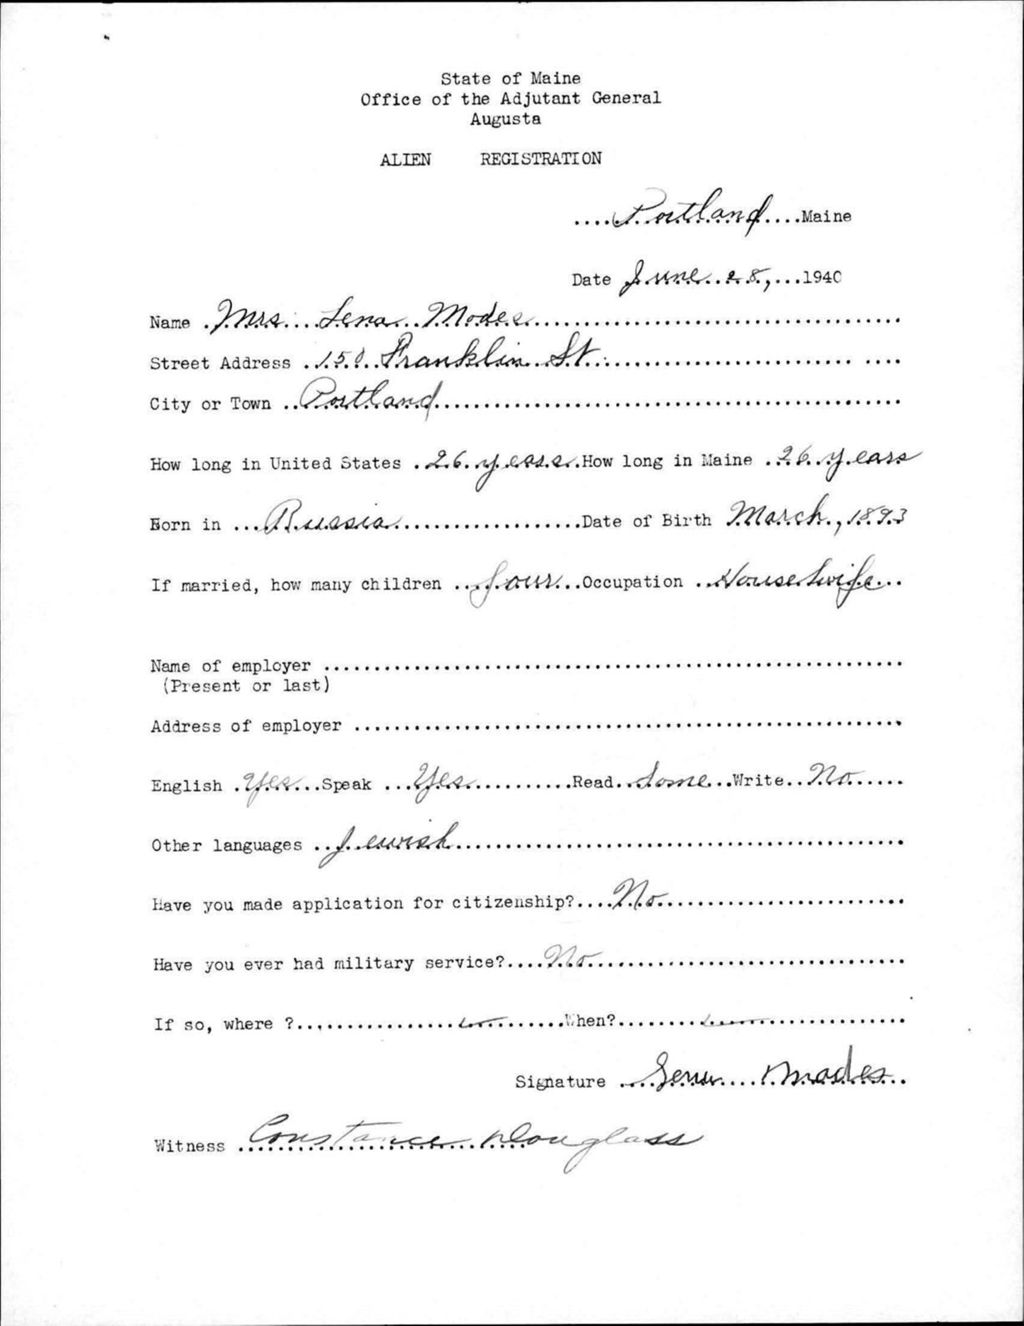 State of Maine
Office of the Adjutant General
Augusta
ALIEN REGISTRATION
....Portland....Maine
Date June 28,...1940
Name .Mrs. Lena Modes
Street Address .150 Franklin St.
City or Town ..Portland
How long in United States .26 years.How long in Maine .26 years
Born in ...Russia...Date of Birth March, 1893
If married, how many children ..four...Occupation ..Housewife...
Name of employer
(Present or last)
Address of employer
English .Yes...Speak ...Yes...Read..Some...Write..No.....
Other languages ..Jewish
Have you made application for citizenship?....No
Have you ever had military service?....No
If so, where ?...When?...
Signature ...Lena....Modes..
Witness .Constance Douglass